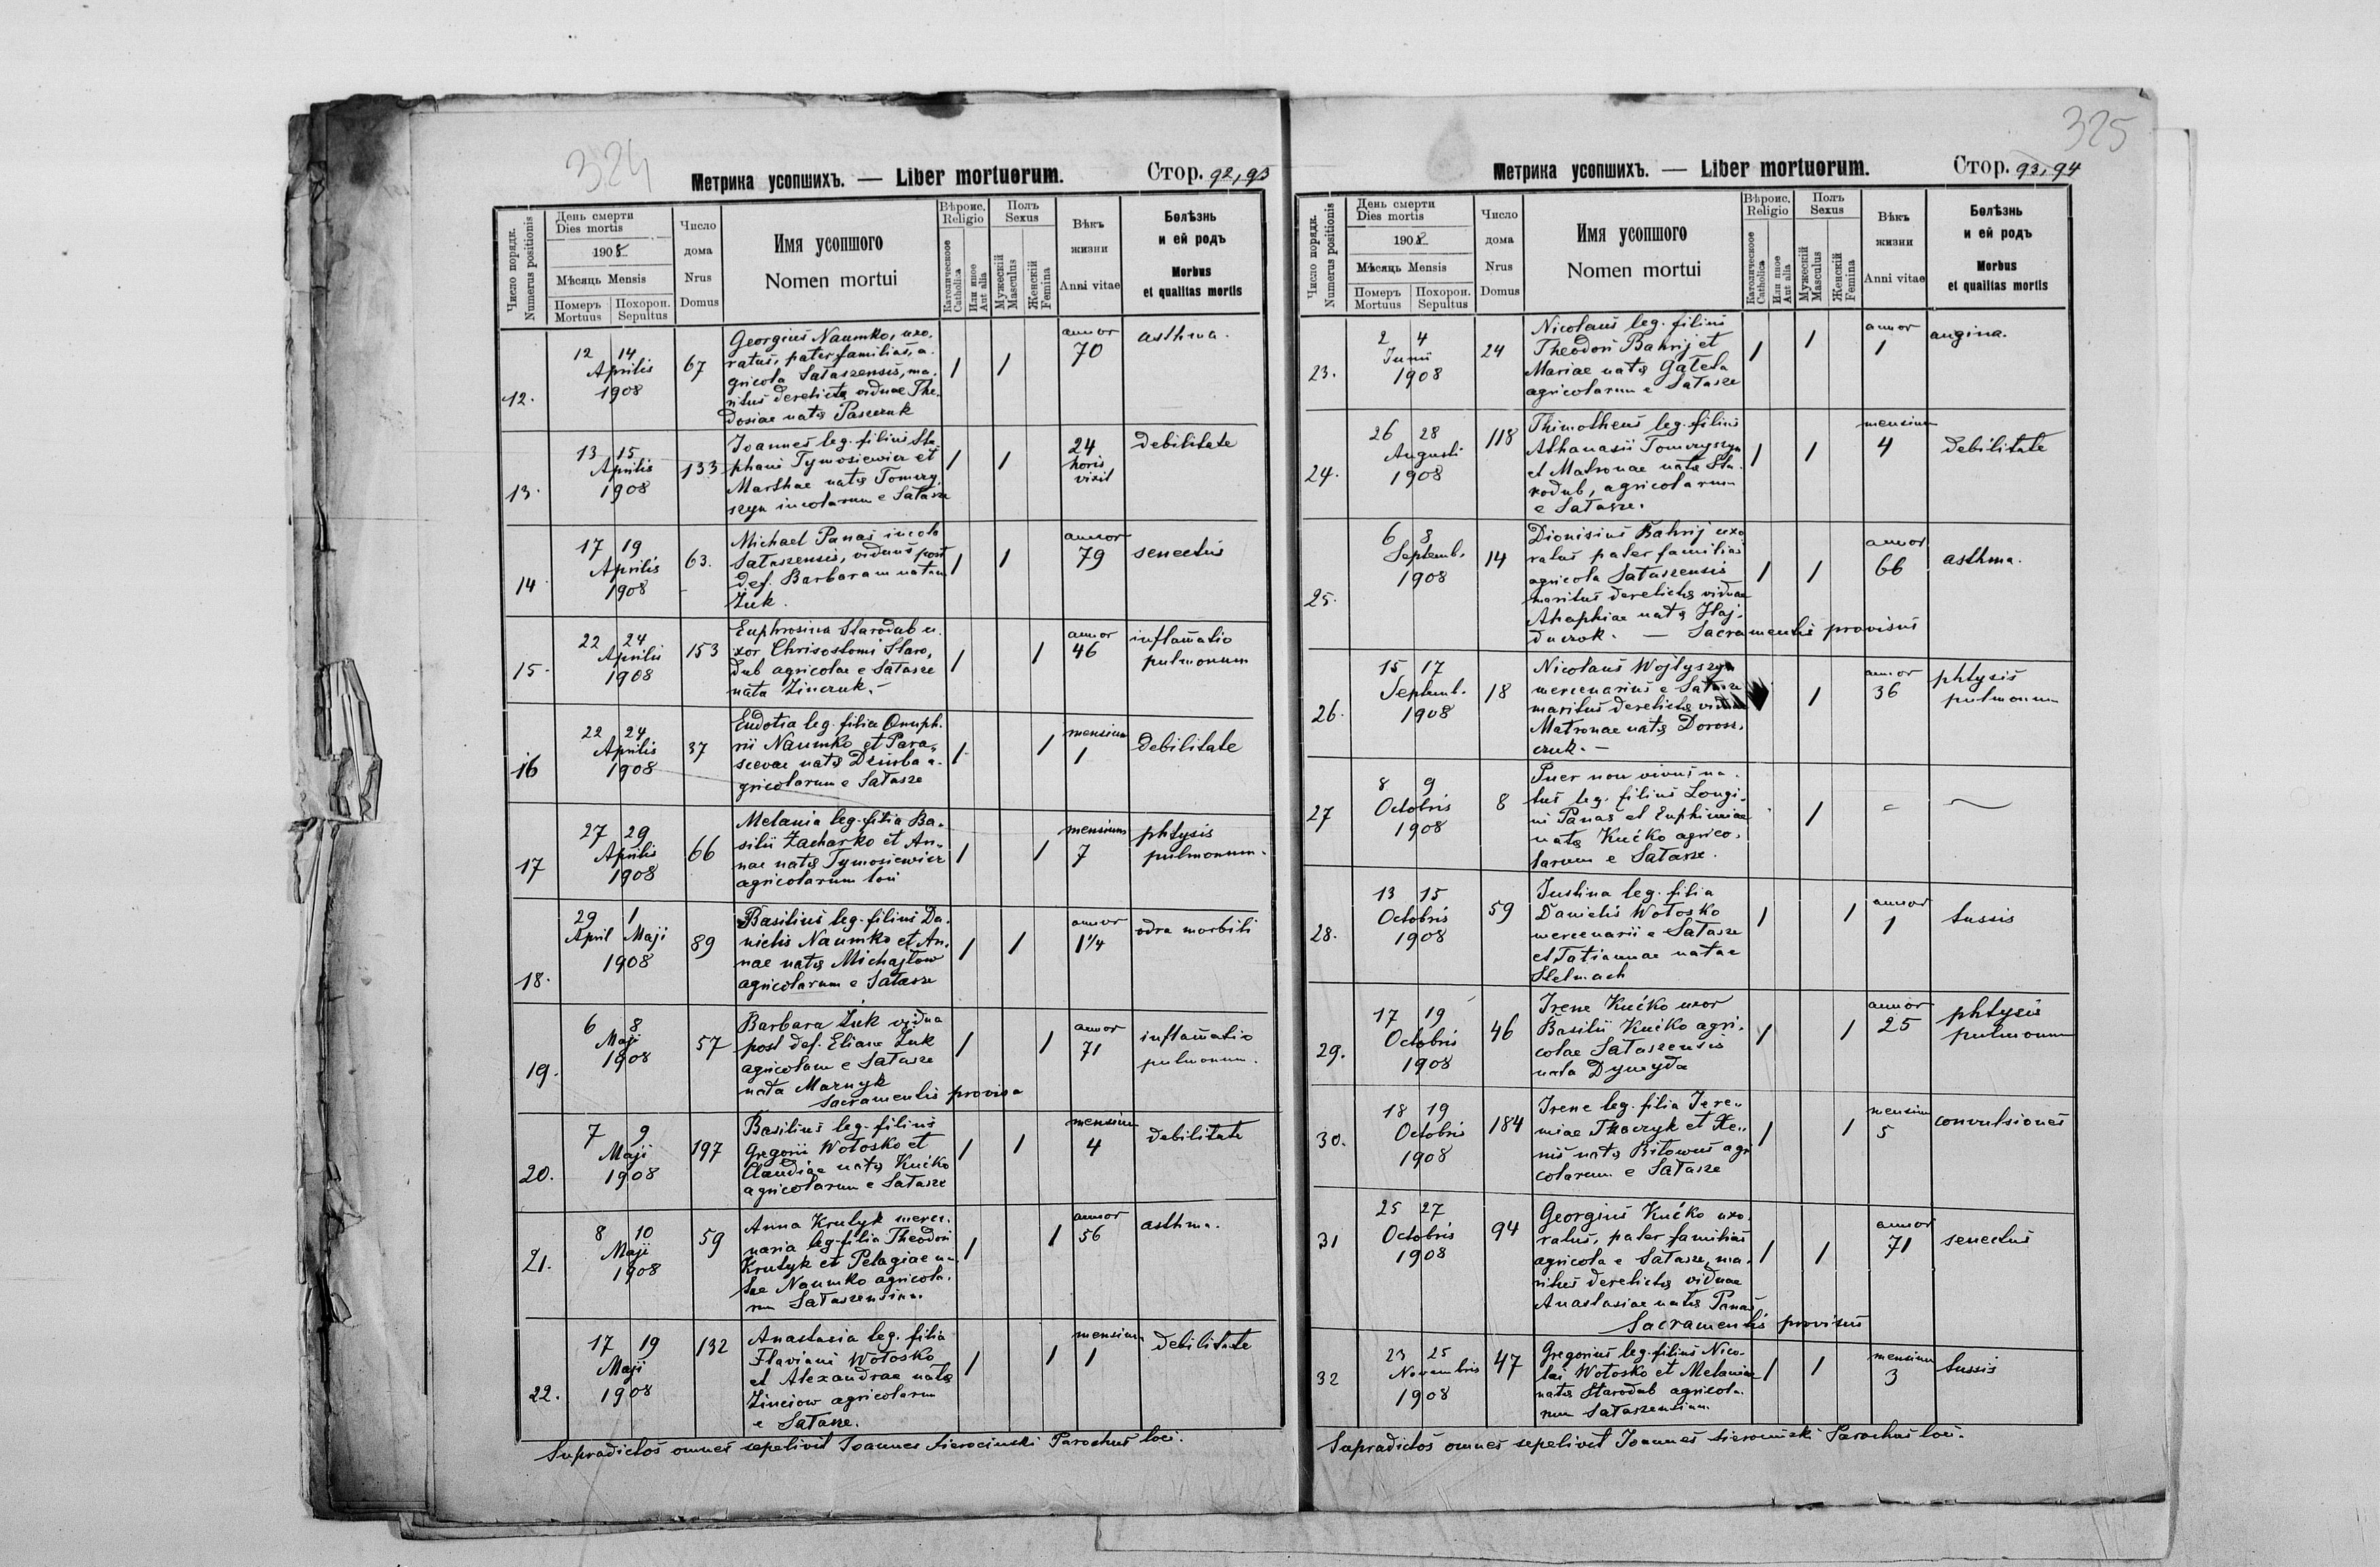 324
Метрика усопшихъ. — Liber mortuorum.
Стор. 92, 93
Число порядк.
Numerus positionis
День смерти
Dies mortis
1908
Мѣсяць Mensis
Померъ Mortuus
Похорон. Sepultus
Число дома
Nrus Domus
Имя усопшого
Nomen mortui
Вѣроис.
Religio
Католическое
Catholica
Или иное
Aut alia
Полъ
Sexus
Мужескій
Masculus
Женскій
Femina
Вѣкъ жизни
Anni vitae
Болѣзнь
и ей родъ
Morbus
et qualitas mortis
12.
12 14
Aprilis
1908
67
Georgius Naumko, uxo-
ratus, pater familias, a-
gricola Sałaszensis, ma-
ritus derelictę viduae The-
dosiae natę Paszczuk
1 1
annor
70
asthma.
13.
13 15
Aprilis
1908
133
Joannes leg. filius Ste-
phani Tymosiewicz et
Marthae natę Tomczy-
szyn incolarum e Sałasze
1 1
24
horis
vixit
debilitate
14
17 19
Aprilis
1908
63.
Michael Panas incola
Sałaszensis, viduus post
def. Barbaram natam
Żuk.
1 1
annor
79
senectus
15.
22 24
Aprilis
1908
153
Euphrosina Starodub u-
xor Chrisostomi Staro-
dub agricolae e Sałasze
nata Zinczuk. –
1 1
annor
46
inflam̄atio
pulmonum
16
22 24
Aprilis
1908
37
Eudotia leg. filia Onuph-
rii Naumko et Para-
scevae natę Dziurba a-
gricolarum e Sałasze
1 1
mensium
1
debilitate
17
27 29
Aprilis
1908
66
Melania leg. filia Ba-
silii Zacharko et An-
nae natę Tymosiewicz
agricolarum loci
1 1
mensium
7
phtysis
pulmonum.
18.
29 1
April Maji
1908
89
Basilius leg. filius Da-
nielis Naumko et An-
nae natę Michajłow
agricolarum e Sałasze
1 1
annor
1 1/4
odra morbili
19.
6 8
Maji
1908
57
Barbara Żuk vidua
post def. Eliam Żuk
agricolam e Sałasze
nata Mazuyk
Sacramentis provisa
1 1
annor
71
inflam̄atio
pulmonum.
20.
7 9
Maji
1908
197
Basilius leg. filius
Gregorii Wołosko et
Claudiae natę Kućko
agricolarum e Sałasze
1 1
mensium
4
debilitate
21.
8 10
Maji
1908
59
Anna Krutyk merce-
naria leg. filia Theodori
Krutyk et Pelagiae na-
tae Naumko agricola-
rum Sałaszensium.
1 1
annor
56
asthma.
22.
17 19
Maji
1908
132
Anastasia leg. filia
Flaviani Wołosko
et Alexandrae natę
Zinciow agricolarum
e Sałasze.
1 1
mensium
1
debilitate
Supradictos omnes sepelivit Joannes Sierocinski Parochus loci.
325
Метрика усопшихъ. — Liber mortuorum.
Стор. 93, 94
Число порядк.
Numerus positionis
День смерти
Dies mortis
1908
Мѣсяць Mensis
Померъ Mortuus
Похорон. Sepultus
Число дома
Nrus Domus
Имя усопшого
Nomen mortui
Вѣроис.
Religio
Католическое
Catholica
Или иное
Aut alia
Полъ
Sexus
Мужескій
Masculus
Женскій
Femina
Вѣкъ жизни
Anni vitae
Болѣзнь
и ей родъ
Morbus
et qualitas mortis
23.
2 4
Junii
1908
24
Nicolaus leg. filius
Theodori Bahrij et
Mariae natę Gałeta
agricolarum e Sałasze
1 1
annor
1
angina.
24.
26 28
Augusti
1908
118
Thimotheus leg. filius
Athanasii Tomczyszyn
et Matronae natę Sta-
rodub, agricolarum
e Sałasze.
1 1
mensium
4
debilitate
25.
6 8
Septemb.
1908
14
Dionisius Bahrij uxo
ratus pater familias
agricola Sałaszensis
maritus derelictę viduae
Ahaphiae natę Haj-
duczok. — Sacramentis provisus
1 1
annor
66
asthma.
26.
15 17
Septemb.
1908
18
Nicolaus Wojtyszyn
mercenarius e Sałasze
maritus derelictę viduae
Matronae natę Dorosz-
czuk. –
1
annor
36
phtysis
pulmonum
27
8 9
Octobris
1908
8
Puer non vivus na-
tus leg. filius Longi-
ni Panas et Euphimiae
natę Kućko agrico-
larum e Sałasze.
1
28.
13 15
Octobris
1908
59
Justina leg. filia
Danielis Wołosko
mercenarii e Sałasze
et Tatiannae natae
Stelmach
1 1
annor
1
tussis
29.
17 19
Octobris
1908
46
Irene Kućko uxor
Basilii Kućko agri-
colae Sałaszensis
nata Dymyda
1 1
annor
25
phtysis
pulmonum
30.
18 19
Octobris
1908
184
Irene leg. filia Jere-
miae Tkaczyk et Xe-
nię natę Biłowus agri
colarum e Sałasze
1 1
mensium
5
convulsiones
31
25 27
Octobris
1908
94
Georgius Kućko uxo-
ratus, pater familias
agricola e Sałasze, ma-
ritus derelictę viduae
Anastasiae natę Panas
Sacramentis provisus
1 1
annor
71
senectus
32
23 25
Novembris
1908
47
Gregorius leg. filius Nico-
lai Wołosko et Melaniae
natę Starodub agricola-
rum Sałaszensium
1 1
mensium
3
tussis
Supradictos omnes sepelivit Joannes Sierocinski Parochus loci.